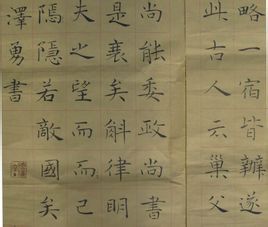 略一宿皆辦遂
此古人云巢父
尚能委政尚書
是衰矣斛律明
夫之望而而已
隱隱若敵國矣
澤勇書